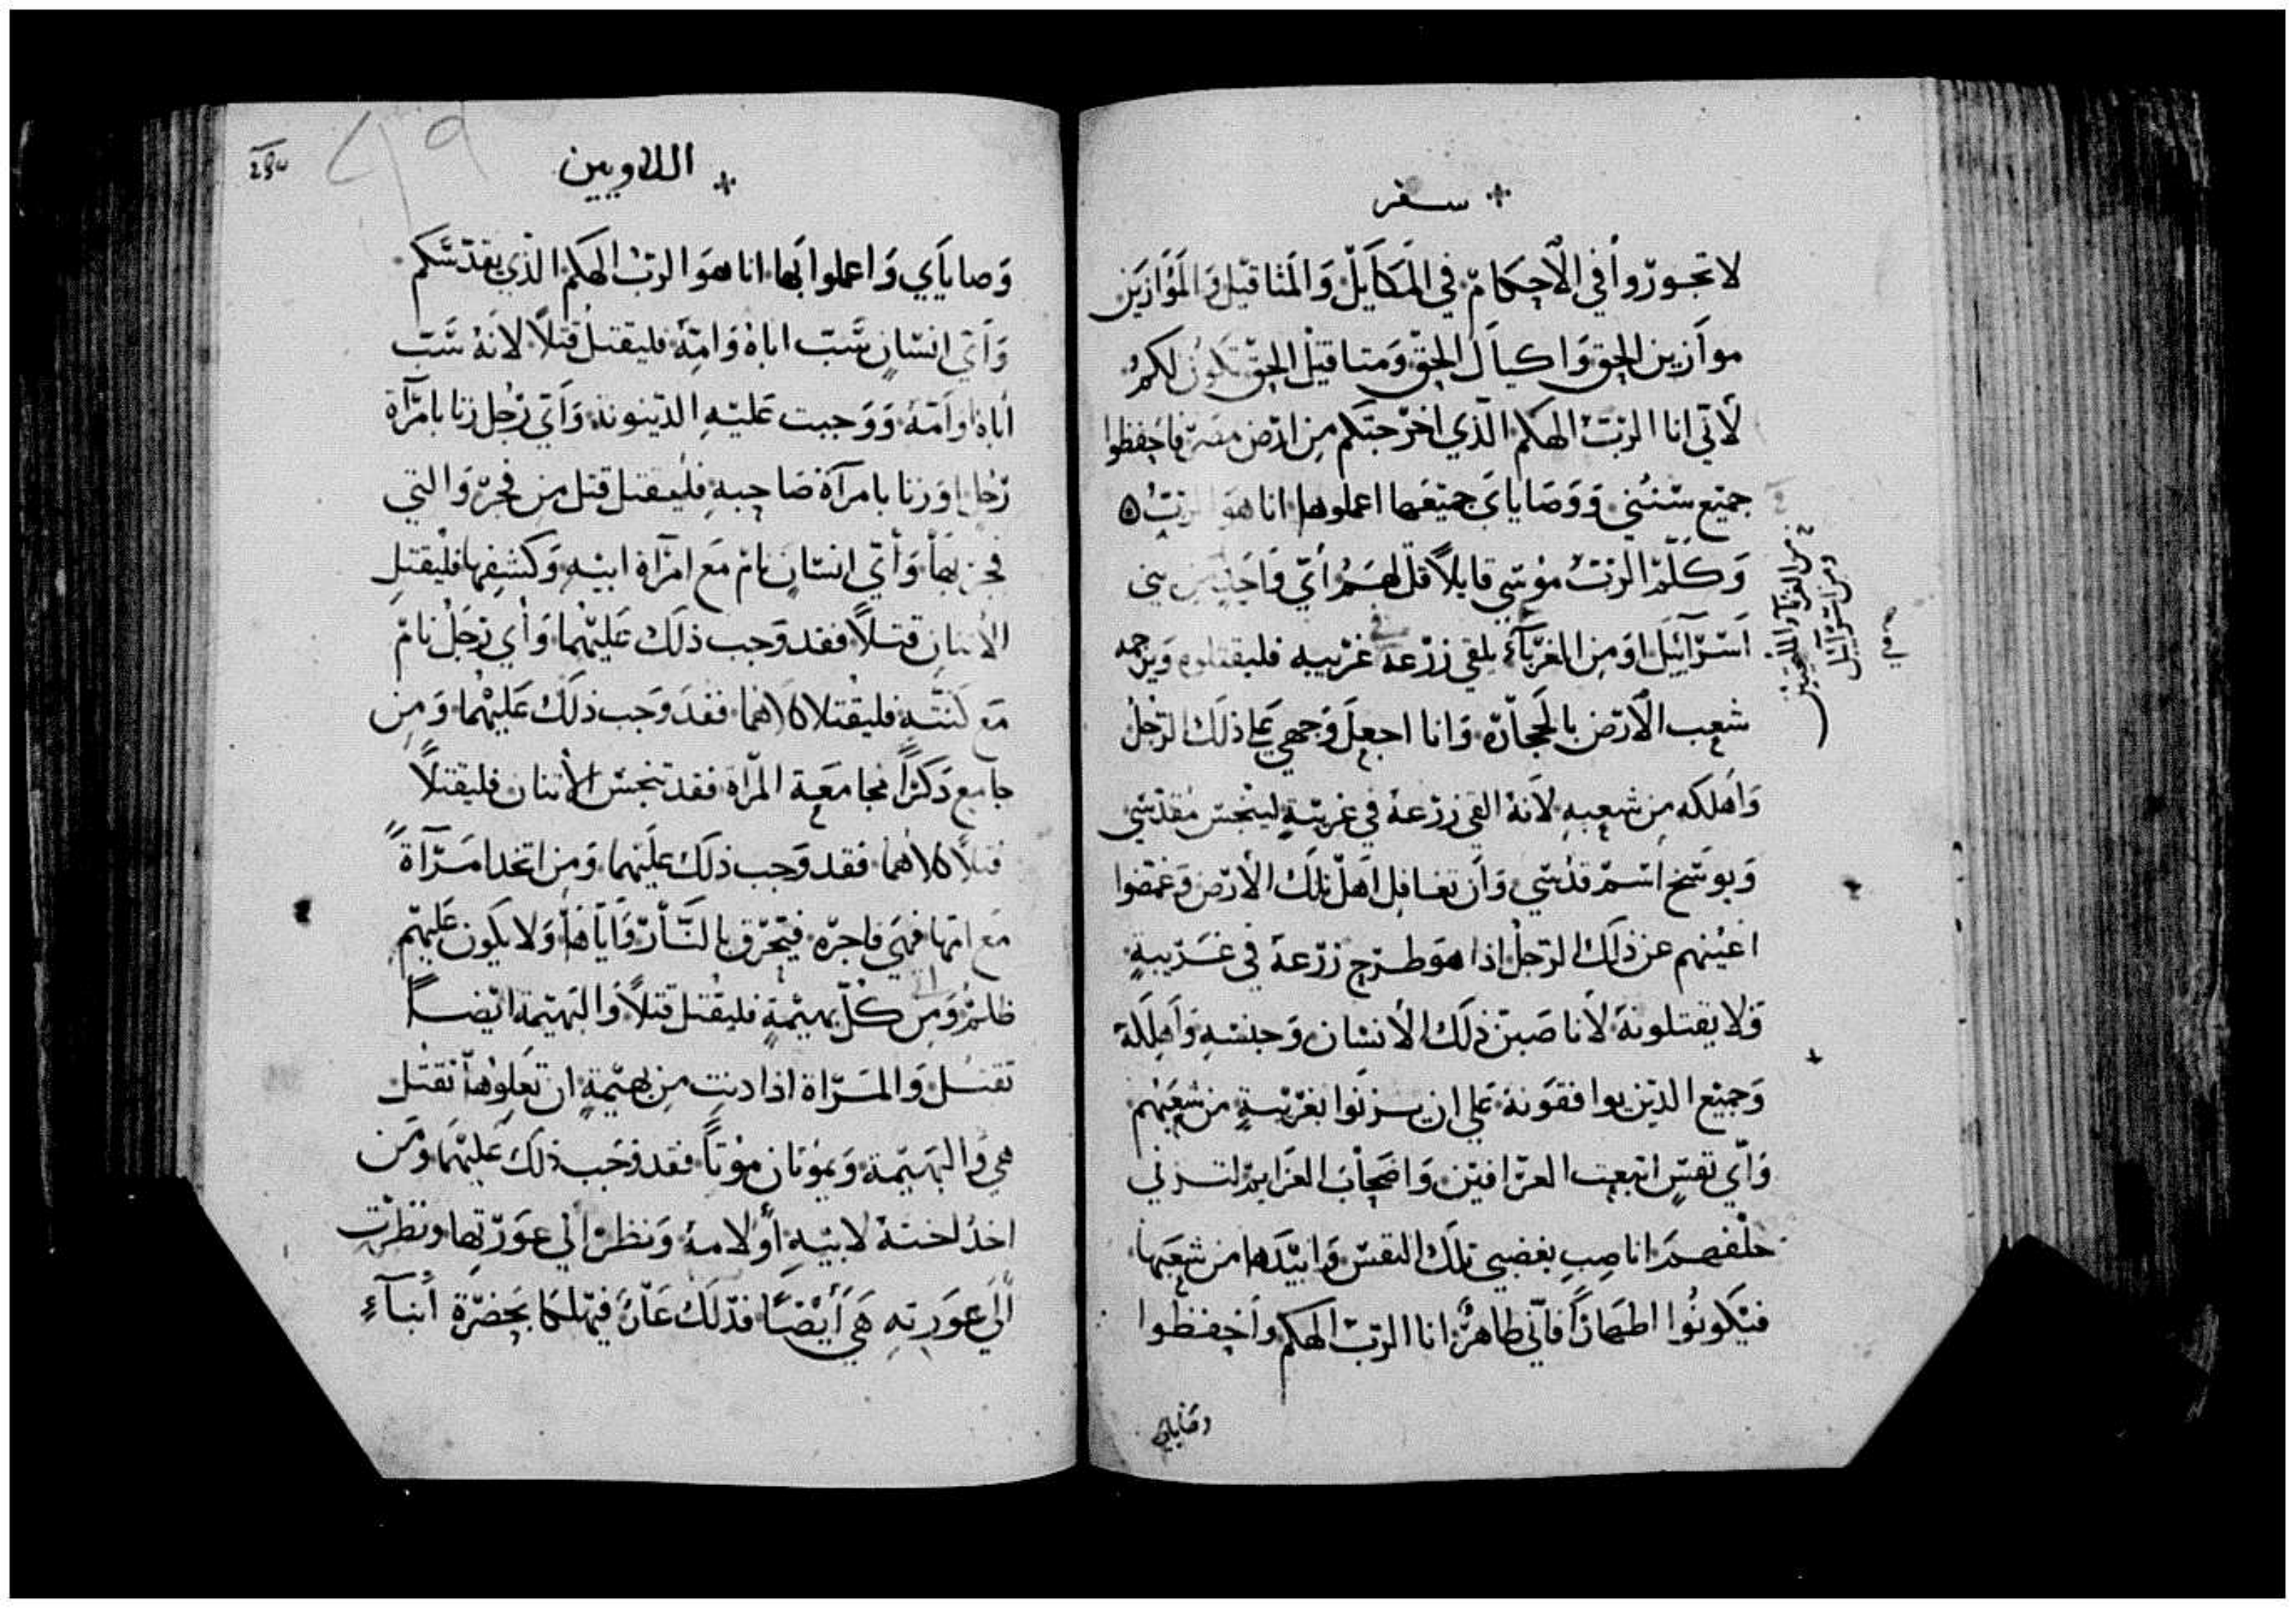 سفر
لا تجوروا في الاحكام في المكاييل والمثاقيل والموازين
موازين الحق واكيال الحق ومتاقيل الحق تكون لكم
لاني انا الرب الهكم الذي اخرجتكم من ارض مصر فاحفظوا
جميع سنني ووصاياي جميعها اعملوها انا هو الرب
وكلم الرب موسي قايلا قل لهم اي واحد من بني
اسرآئيل او من الغربآء يلقي زرعه في غريبه فليقتلوه ويرجمه
شعب الارض بالحجارة وانا اجعل وجهي علي ذلك الرجل
واهلكه من شعبه لانه القي زرعه في غريبة لينجس مقدسي
ويوسخ اسم قدسي وان تغافل اهل تلك الارض وغمضوا
اعينهم عن ذلك الرجل اذا هو طرح زرعه في غريبة
فلا يقتلونه لانا صبن ذلك الانسان وجنسه واهلكه
وجميع الذين يوافقونه علي ان يزنوا بغريبة من شعبهم
واي نفس اتبعت العرافين واصحاب العزايم لتزني
خلفهم انا صب بغضبي تلك النفس وابيدها من شعبها
فيكونوا اطهارا فاني طاهر انا الرب الهكم واحفظوا
وصاياي
من الغربآء المقبلين
ومن اسرآئيل
اللاويين
وصاياي واعملوا بها انا هو الرب الهكم الذي يقدسكم
واي انسان سب اباه وامه فليقتل قتلا لانه سب
اباه او امه ووجبت عليه الدينونه واي رجل زنا بامرآة
رجل او زنا بامرآة صاحبه فليقتل قتل من فجر والتي
فجر بها واي انسان نام مع امرآة ابيه وكشفها فليقتل
الاتنان قتلا فقد وجب ذلك عليهما واي رجل نام
مع كنته فليقتلا كلاهما فقد وجب ذلك عليهما ومن
جامع ذكرا مجامعة المراه فقد تنجس الاتنان فليقتلا
قتلا كلاهما فقد وجب ذلك عليهما ومن اتخد امرآة
مع امها فهي فاجره فيحرق بالنار واياها ولا يكون عليهم
ظلم ومن اتي كل بهيمة فليقتل قتلا والبهيمة ايضا
تقتل والمراة اذا دنت من بهيمة ان تعلوها تقتل
هي والبهيمة ويموتان موتا فقد وجب ذلك عليهما ومن
اخذ اخته لابيه او لامه ونظر الي عورتها ونظرت
الي عورته هي ايضا فذلك عار فيهلكا بحضرة ابنآء